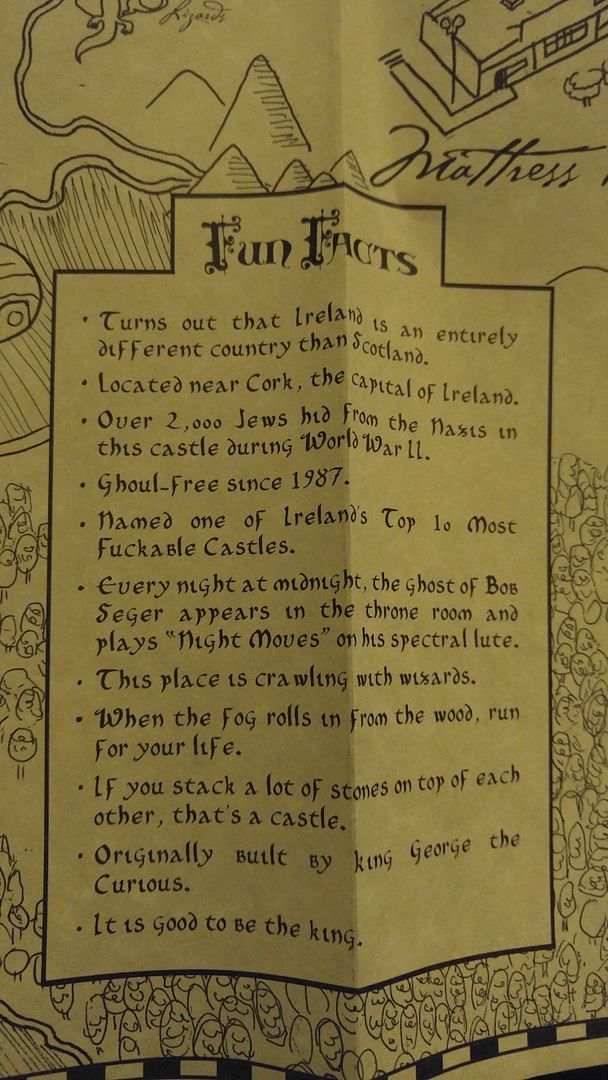 Lizards
Mattress
Fun Facts
• Turns out that Ireland is an entirely
different country than Scotland.
• Located near Cork, the capital of Ireland.
• Over 2,000 Jews hid from the Nazis in
this castle during World War II.
• Ghoul-free since 1987.
• Named one of Ireland's Top 10 Most
Fuckable Castles.
• Every night at midnight, the ghost of Bob
Seger appears in the throne room and
plays "Night Moves" on his spectral lute.
• This place is crawling with wizards.
• When the fog rolls in from the wood, run
for your life.
• If you stack a lot of stones on top of each
other, that's a castle.
• Originally built by King George the
Curious.
• It is good to be the king.